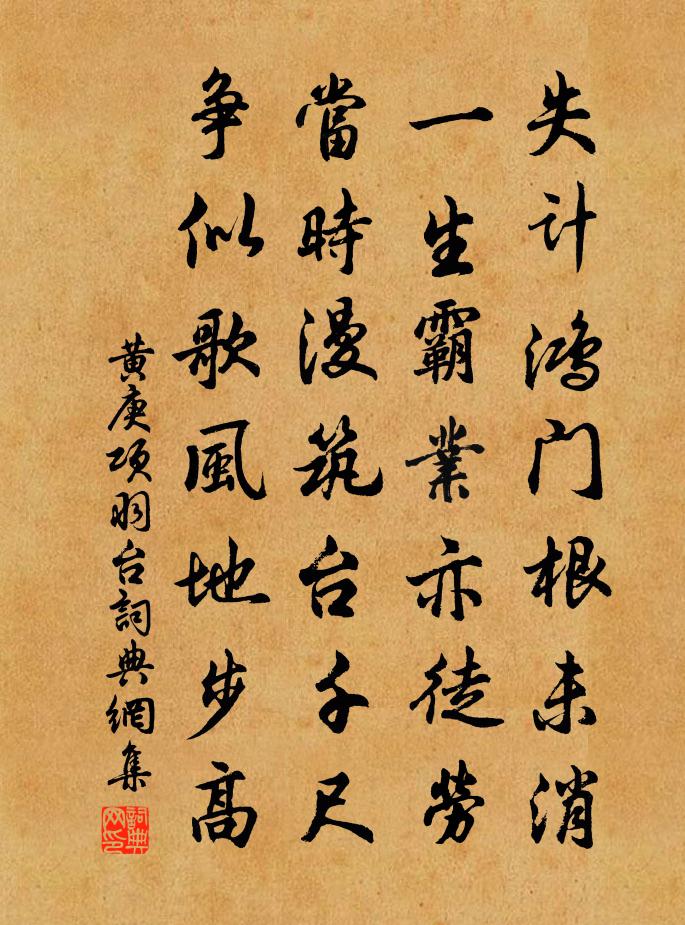 失计鸿门根未消
一生霸業亦徒勞
當時漫筑台千尺
争似歌風地步高
黄庚项羽台詞典網集
詞典网印